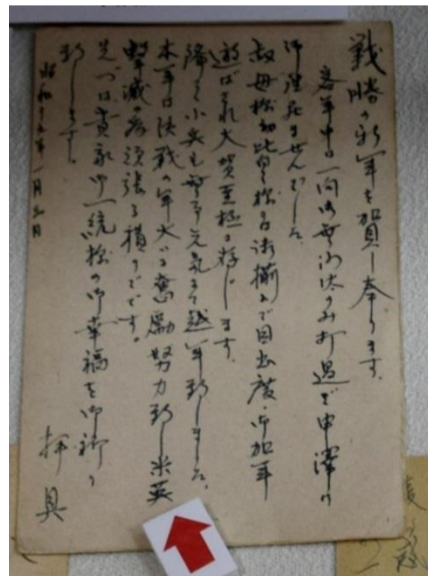 戦勝の新年を賀し奉ります。
客年中は一向御無沙汰のみ打過ぎ申譯の
御座居ませんでした。
叔母様初め皆々様には御揃ひで目出度く御加年
遊ばされ大賀至極に存じます。
降って小生も無事元気にて越年致しました。
本年は決戦の年大いに奮励努力致し米英
撃滅の為頑張る積りです。
先づは貴家御一統様の御幸福を御祈り
致します。
拝具
昭和十九年一月元日